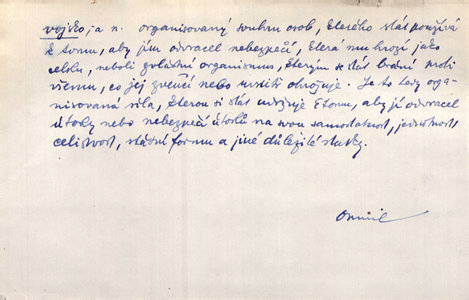 vojsko, -a n. organisovaný souhrn osob, kterého stát používá
k tomu, aby jím odvracel nebezpečí, která mu hrozí jako
celku, neboli zvláštní organismus, kterým se stát brání proti
všemu, co jej zvenčí nebo uvnitř ohrožuje. Je to tedy orga-
nisovaná síla, kterou si stát udržuje k tomu, aby jí odvracel
útoky nebo nebezpečí útoků na svou samostatnost, jednotnost
celistvost, státní formu a jiné důležité statky.